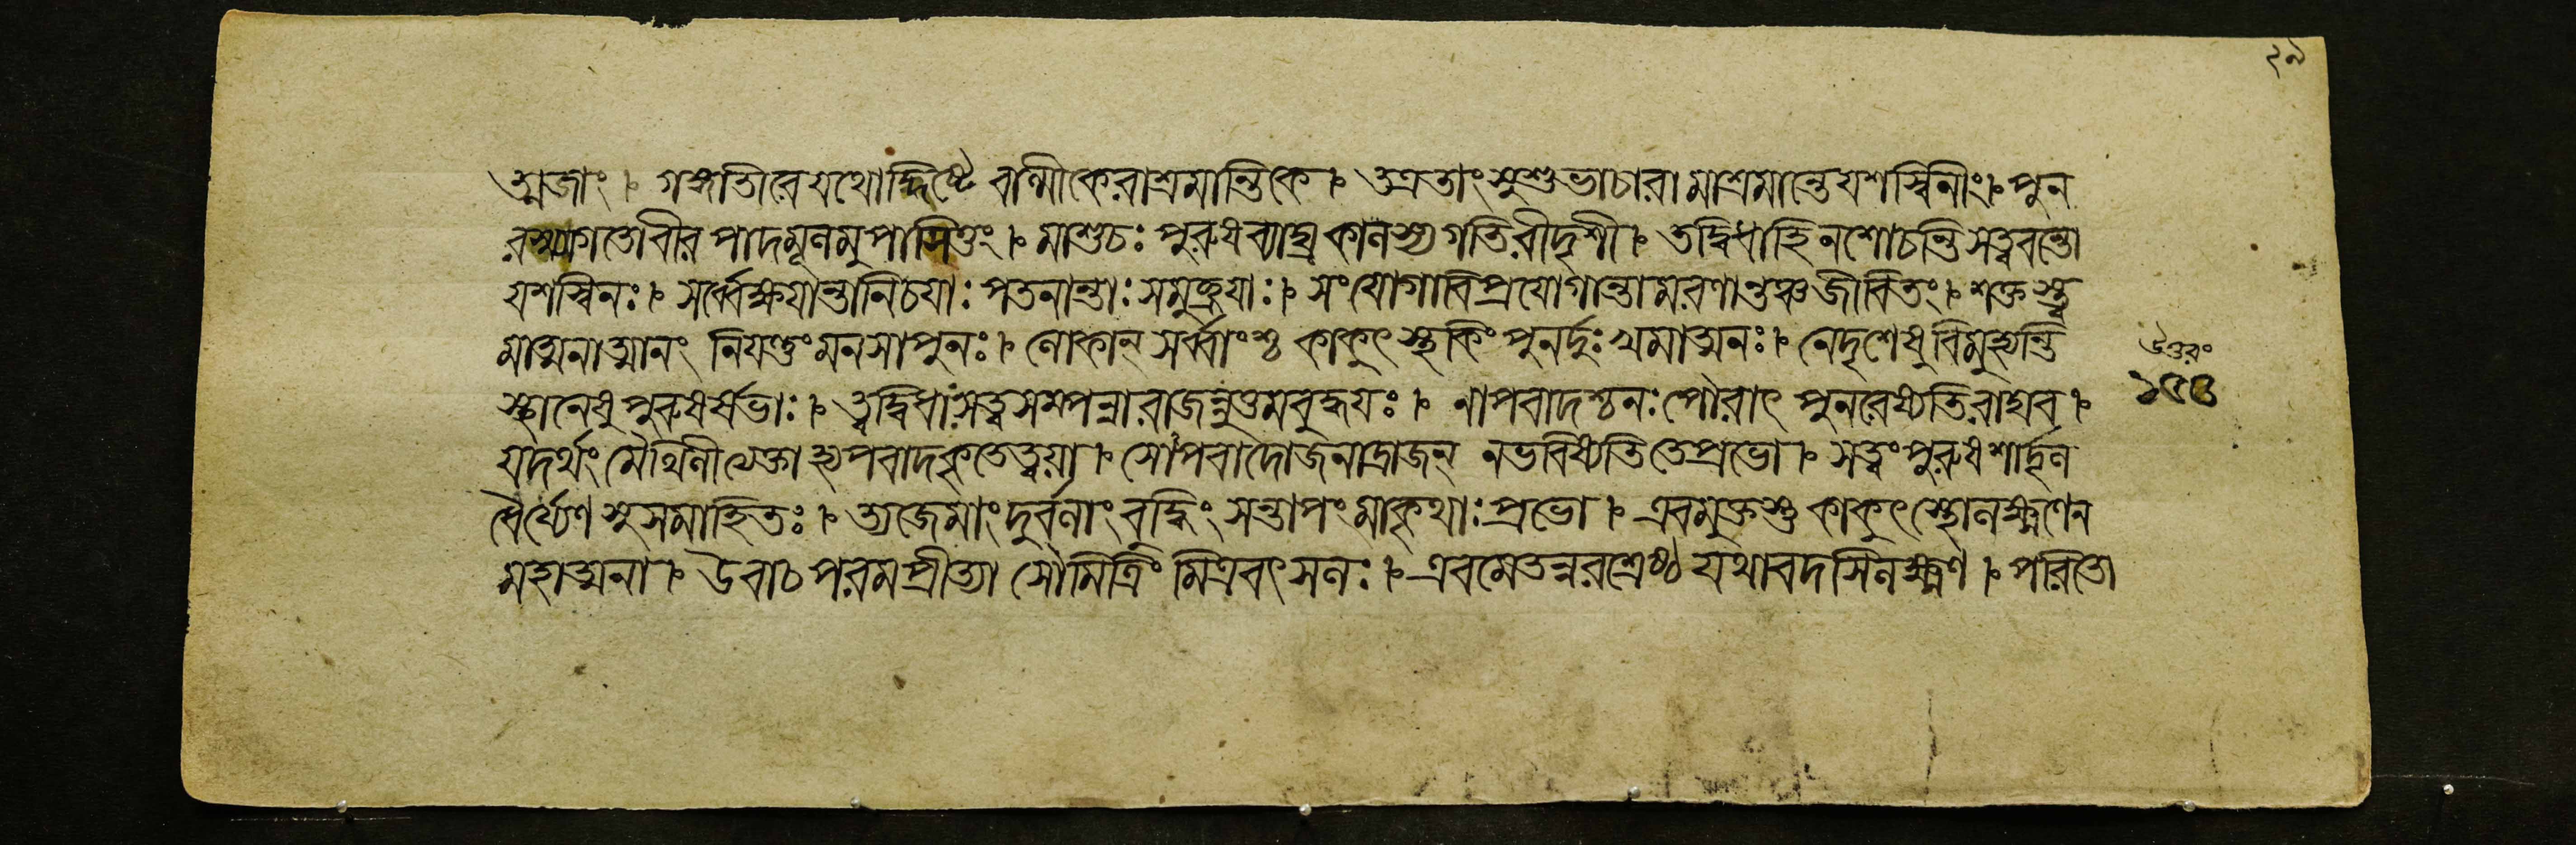 ২৯
ত্মজাং । গঙ্গাতীরে যথোদ্দিষ্টে বাল্মীকেরাশ্রমান্তিকে । তত্রতাং সুশুভাচারামাশ্রমান্তে যশস্বিনীং । পুন
রস্ম্যাগতোবীর পাদমূলমুপাসিতুং । মাশুচঃ পুরুষব্যাঘ্র কালস্য গতিরীদৃশী । তদ্বিধাহি নশোচন্তি সত্ত্ববন্তো
যশস্বিনঃ । সর্ব্বেক্ষয়ান্তানিচয়াঃ পতনান্তাঃ সমুচ্ছ্রয়াঃ । সংযোগাবিপ্রয়োগান্তামরণান্তঞ্চজীবিতং । শক্তস্ত্ব
মাত্মনাত্মানং নিয়ন্তুং মনসাপুনঃ । লোকান্ সর্ব্বাংশ্চ কাকুৎস্থ কিং পুনর্দুঃখমাত্মনঃ । নেদৃশেষু বিমুহ্যন্তি
স্থানেষু পুরুষর্ষভাঃ । ত্বদ্বিধাঃসত্ত্বসম্পন্নারাজন্নুত্তমবুদ্ধয়ঃ । নাপবাদশ্চনঃ পৌরাৎ পুনরেষ্যতিরাঘব ।
যদর্থং মৈথিলীত্যক্তা হ্যপবাদকৃতেত্বয়া । সোপবাদোজনাদ্রাজন্ নভবিষ্যতিতেপ্রভো । সত্বংপুরুষশার্দ্দূল
ধৈর্য্যেণ সুসমাহিতঃ । ত্যজেমাং দুর্বলাং বুদ্ধিং সন্তাপং মাকৃথাঃ প্রভো । এবমুক্তস্তু কাকুৎস্থোলক্ষ্মণেন
মহাত্মনা । উবাচ পরমপ্রীত্যা সৌমিত্রিং মিত্রবৎসলঃ । এবমেতন্নরশ্রেষ্ঠ যথাবদসিলক্ষ্মণ । পরিতো
উত্তরং
১৫৫